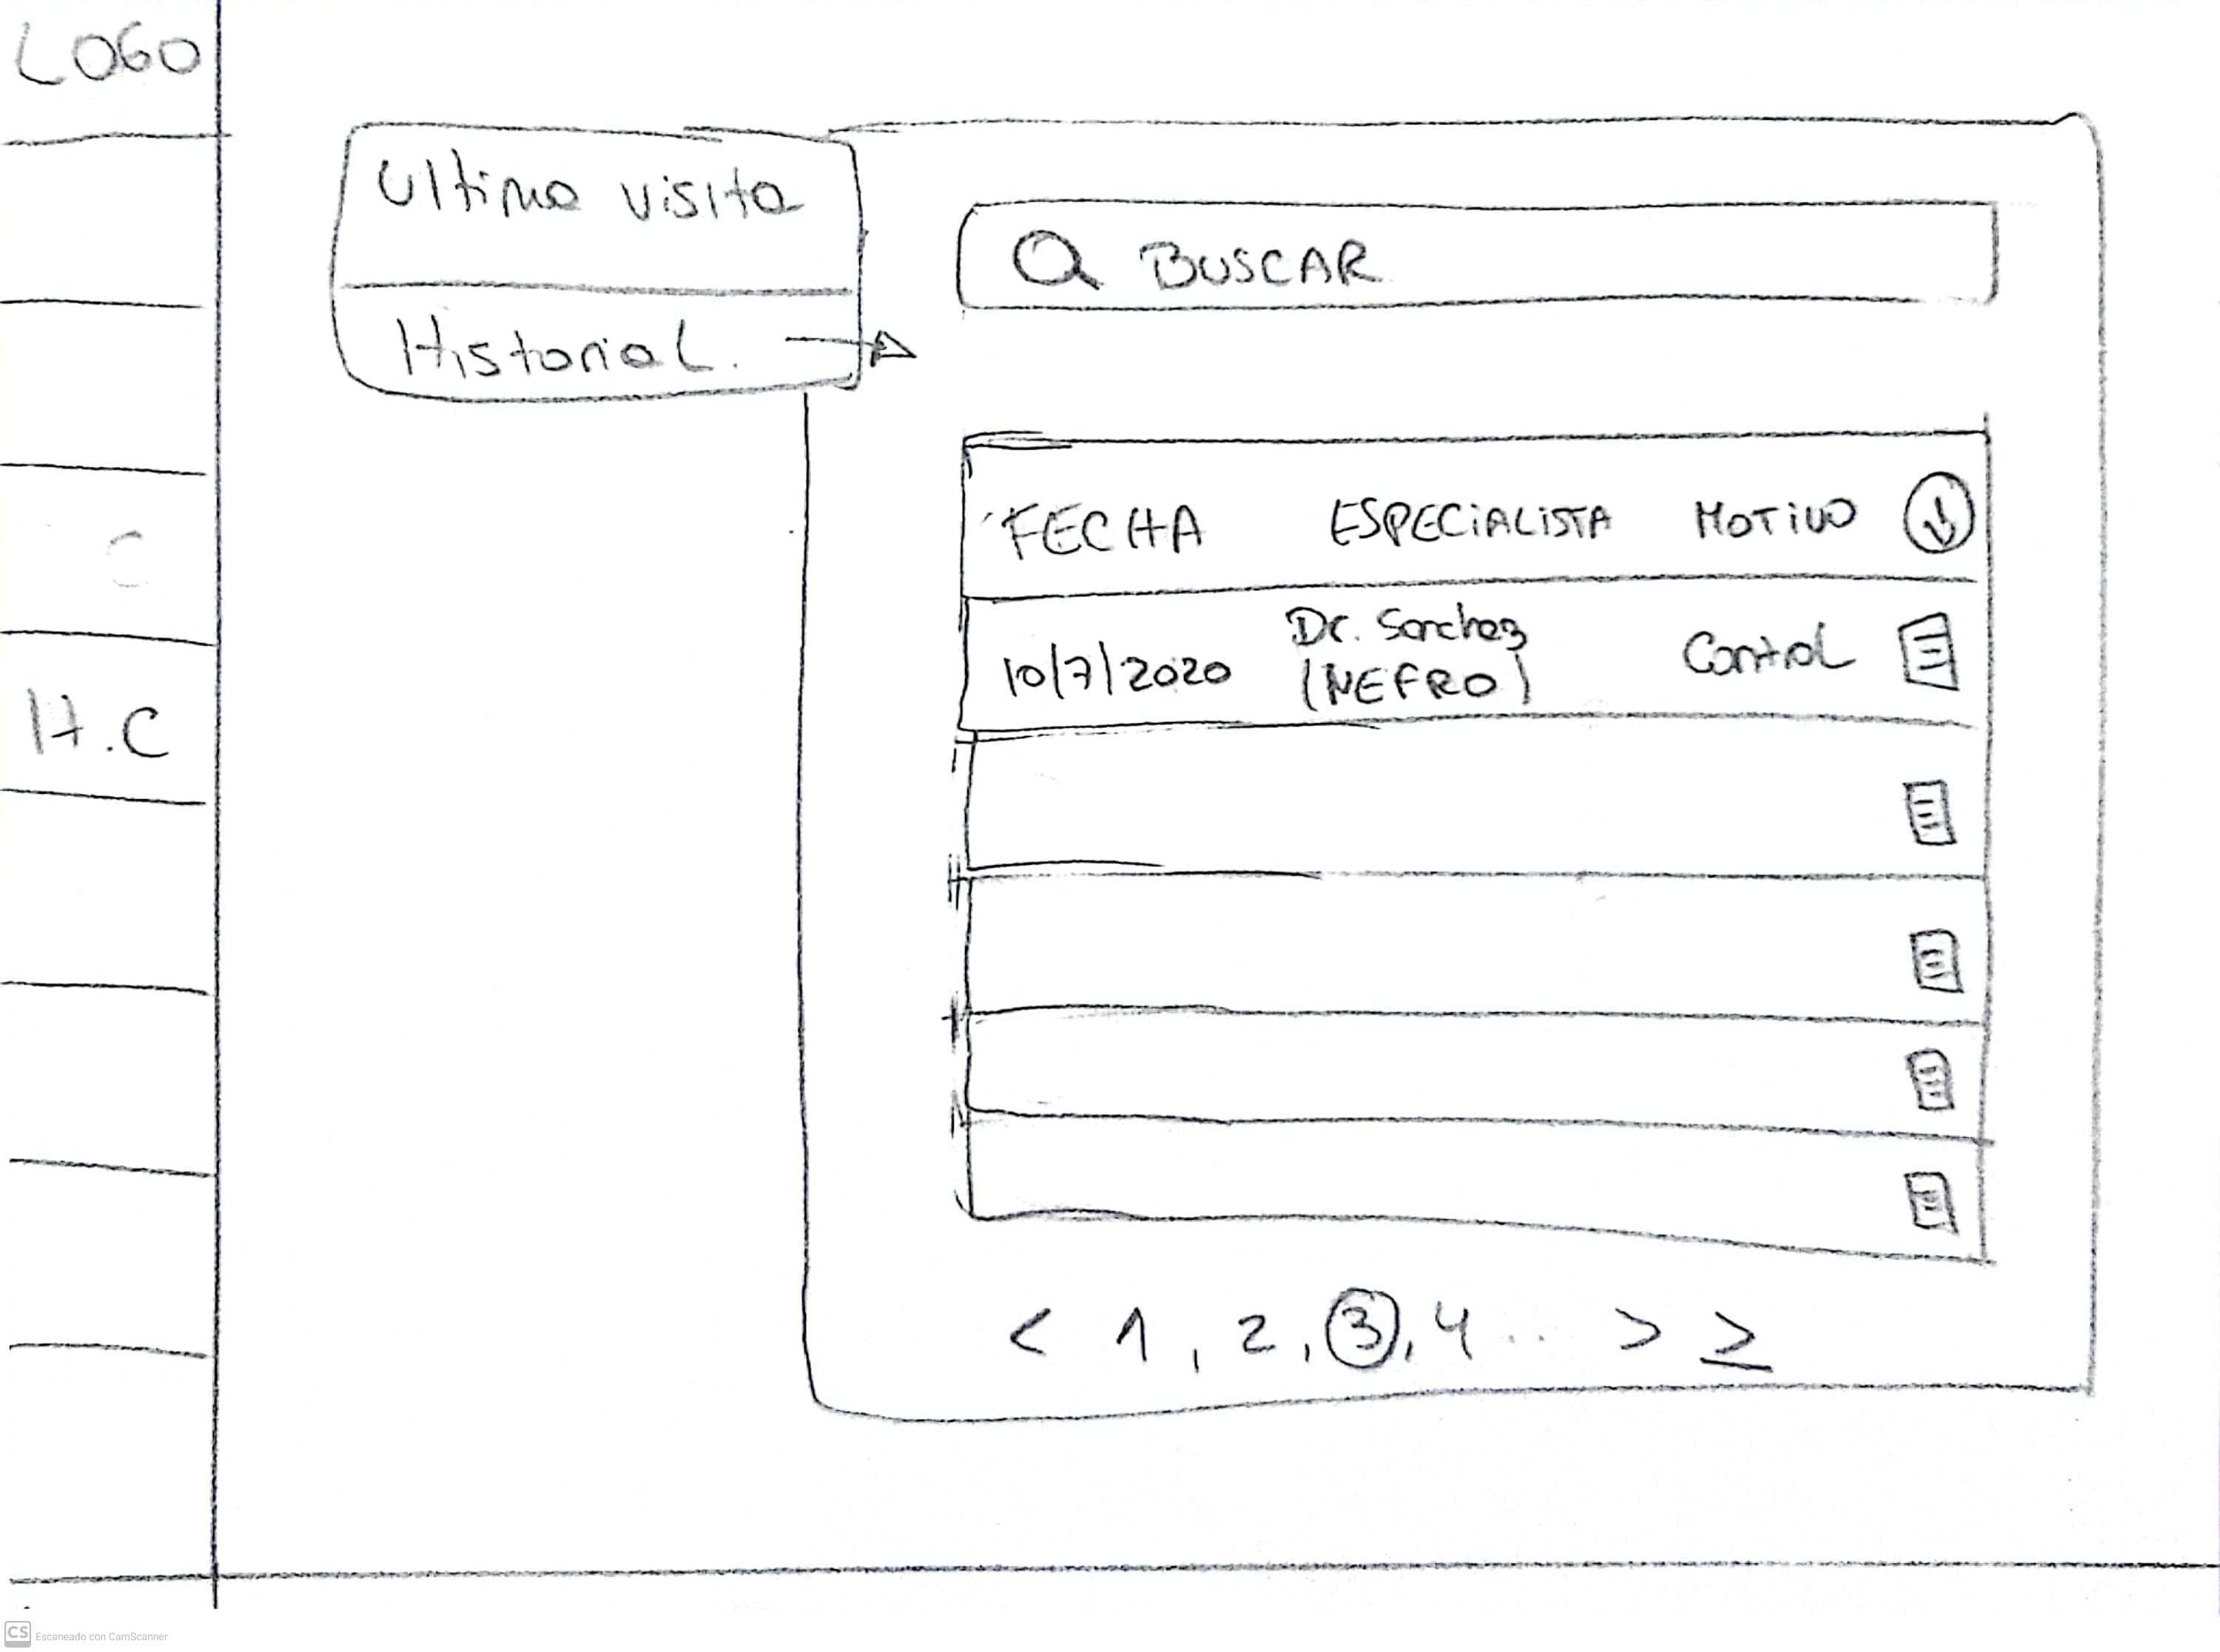 LOGO
Ultima visita
Historial.
BUSCAR
FECHA ESPECIALISTA MOTIVO
10/7/2020 Dr. Sanchez (NEFRO) Control
C
H.C
< 1, 2, 3, 4... > >
CS Escaneado con CamScanner